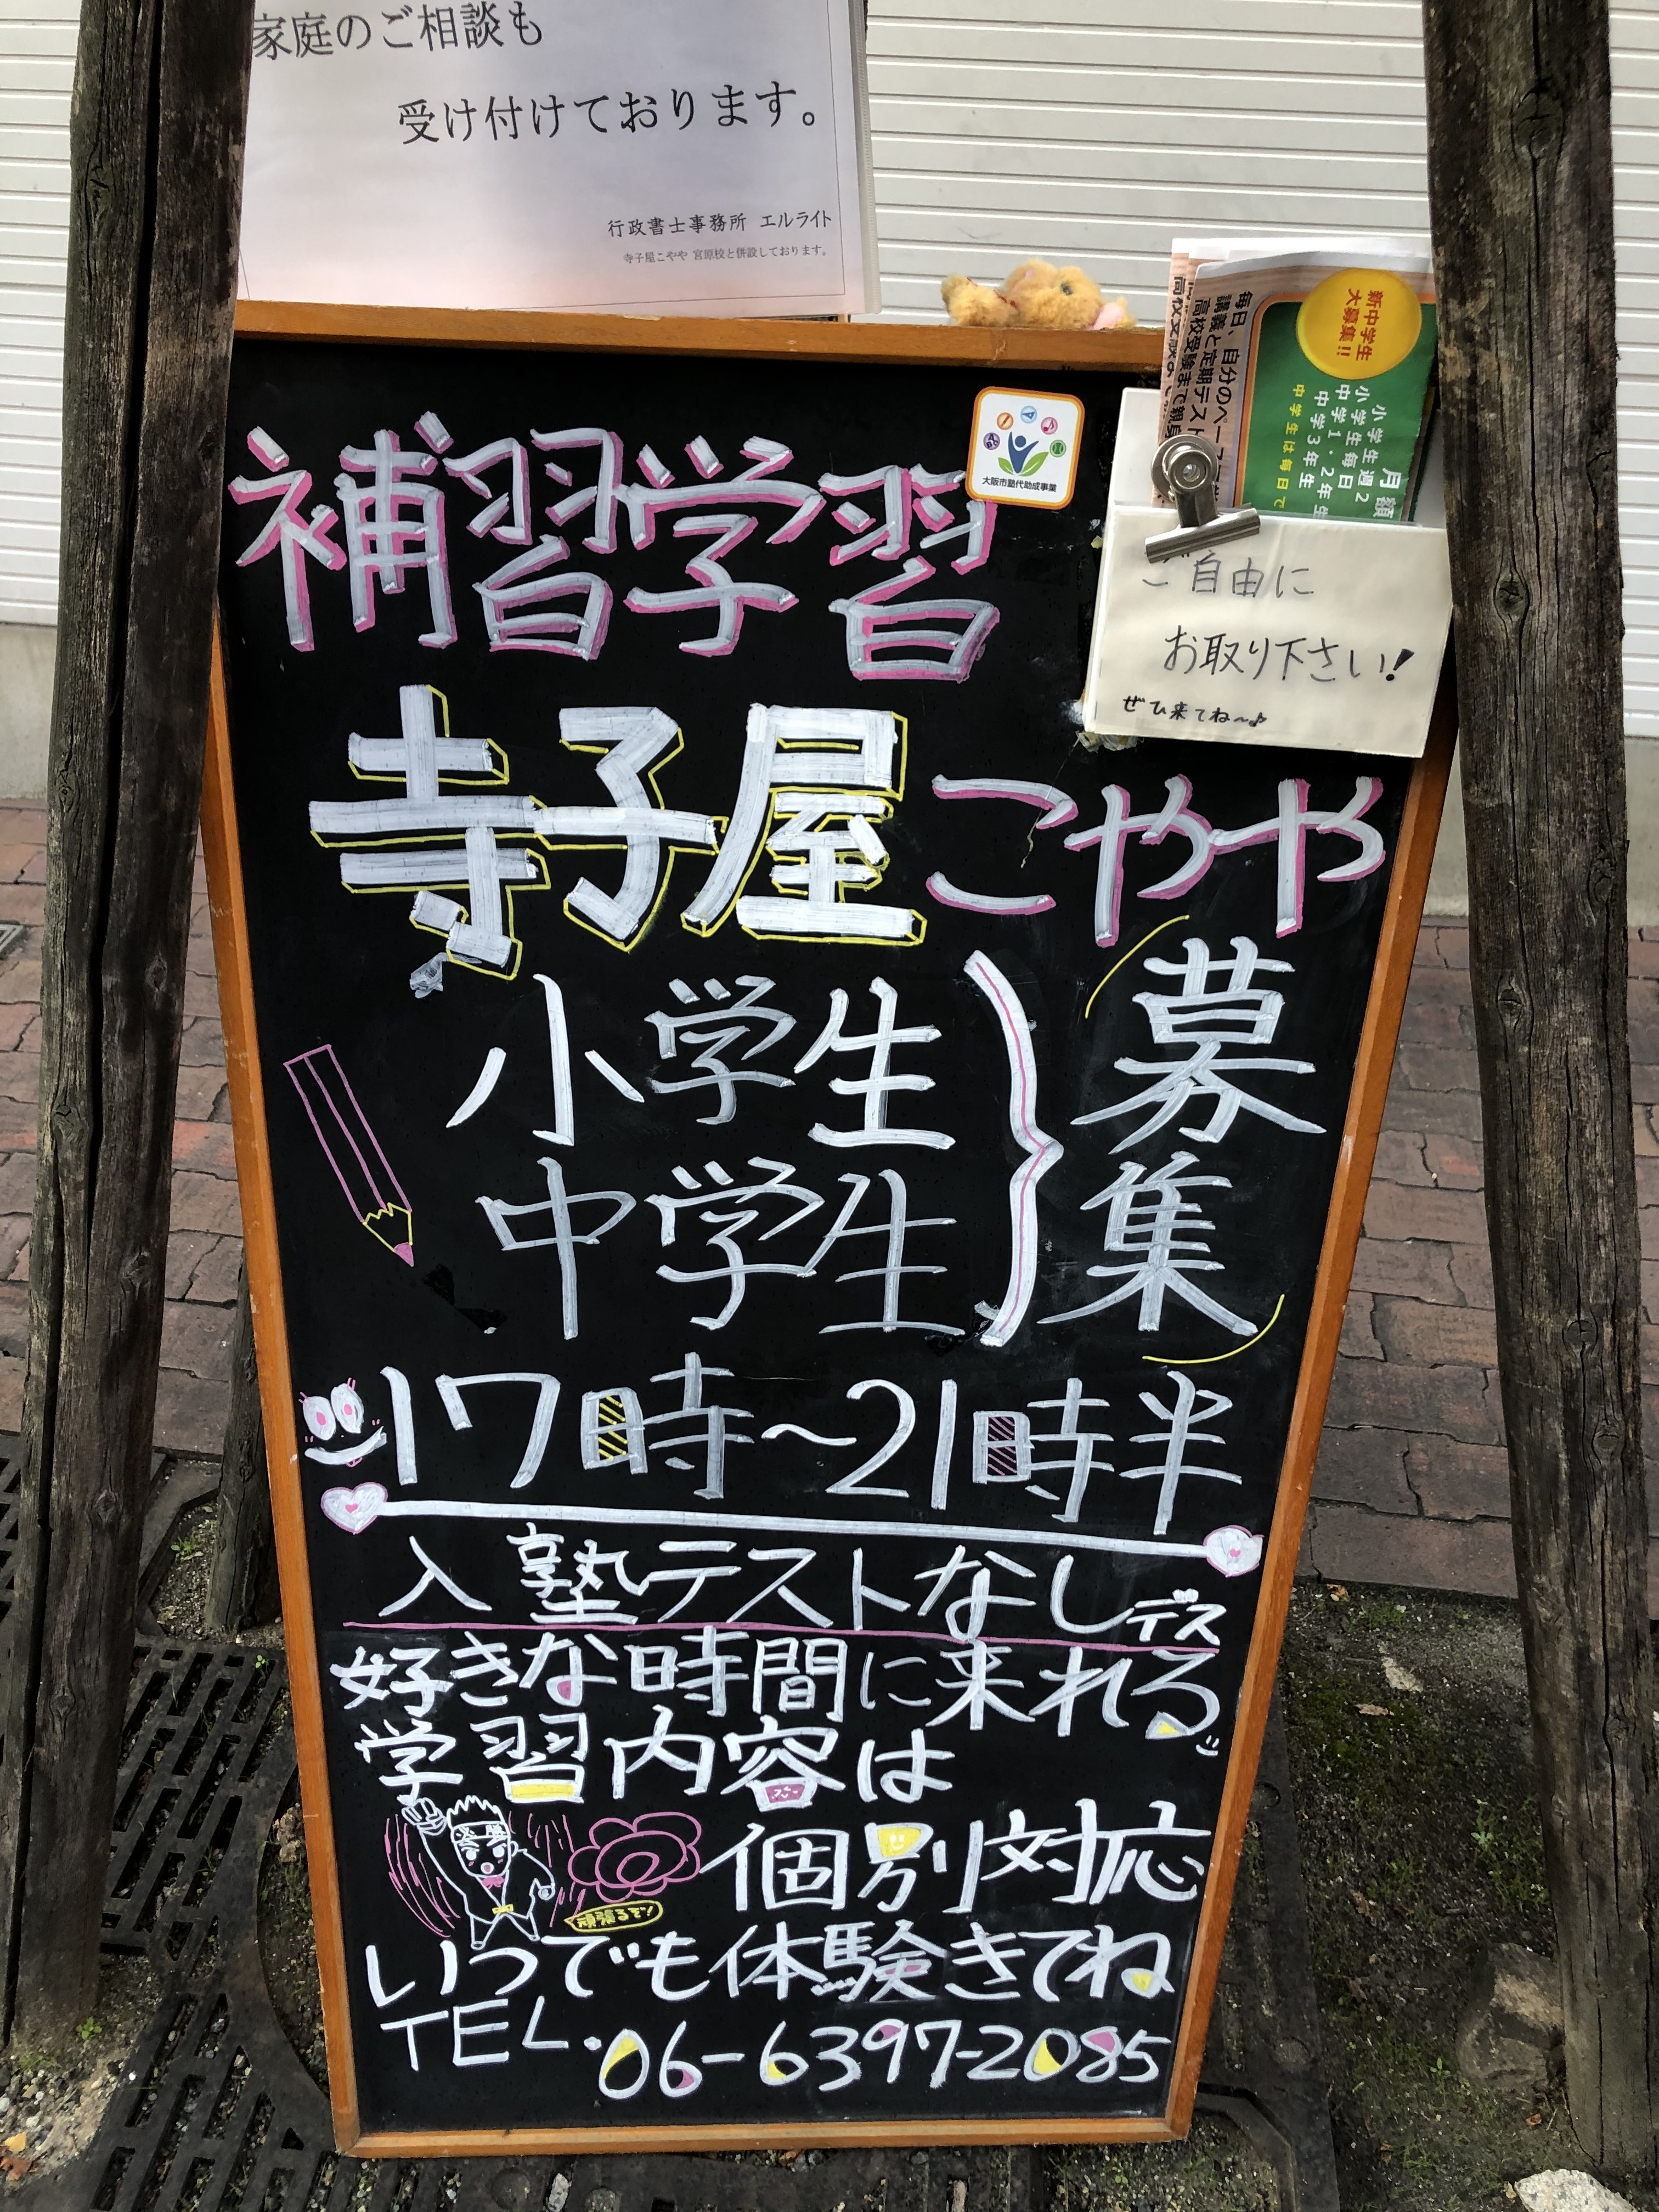 家庭のご相談も
受け付けております。
行政書士事務所 エルライト
寺子屋こやや 宮原校と併設しております。
新中学生
大募集!!
月額
小学生週2
小学生毎日
中学1・2年生
中学3年生
中学生は毎日で
毎日 自分のペー
講義と定期テスト
高校受験まで親身
大阪市塾代助成事業
ご自由に
お取り下さい!
ぜひ来てね〜♪
補習学習
寺子屋こやや
小学生
中学生
募集
17時〜21時半
入塾テストなしデス
好きな時間に来れる
学習内容は
個別対応
頑張るぞ!
いつでも体験きてね
TEL・06-6397-2085